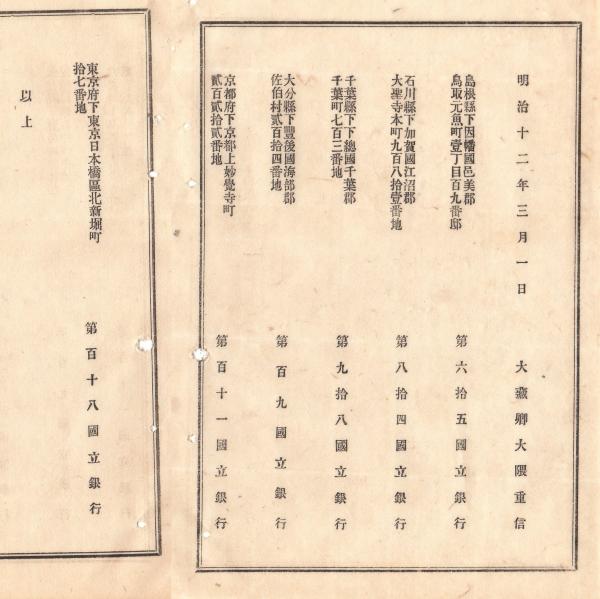 明治十二年三月一日　大藏卿大隈重信
島根縣下因幡國邑美郡
鳥取元魚町壹丁目百九番邸
第六拾五國立銀行
石川縣下加賀國江沼郡
大聖寺本町九百八拾壹番地
第八拾四國立銀行
千葉縣下下總國千葉郡
千葉町七百三番地
第九拾八國立銀行
大分縣下豐後國海部郡
佐伯村貳百拾四番地
第百九國立銀行
京都府下京都上妙覺寺町
貳百貳拾貳番地
第百十一國立銀行
東京府下東京日本橋區北新堀町
拾七番地
第百十八國立銀行
以上